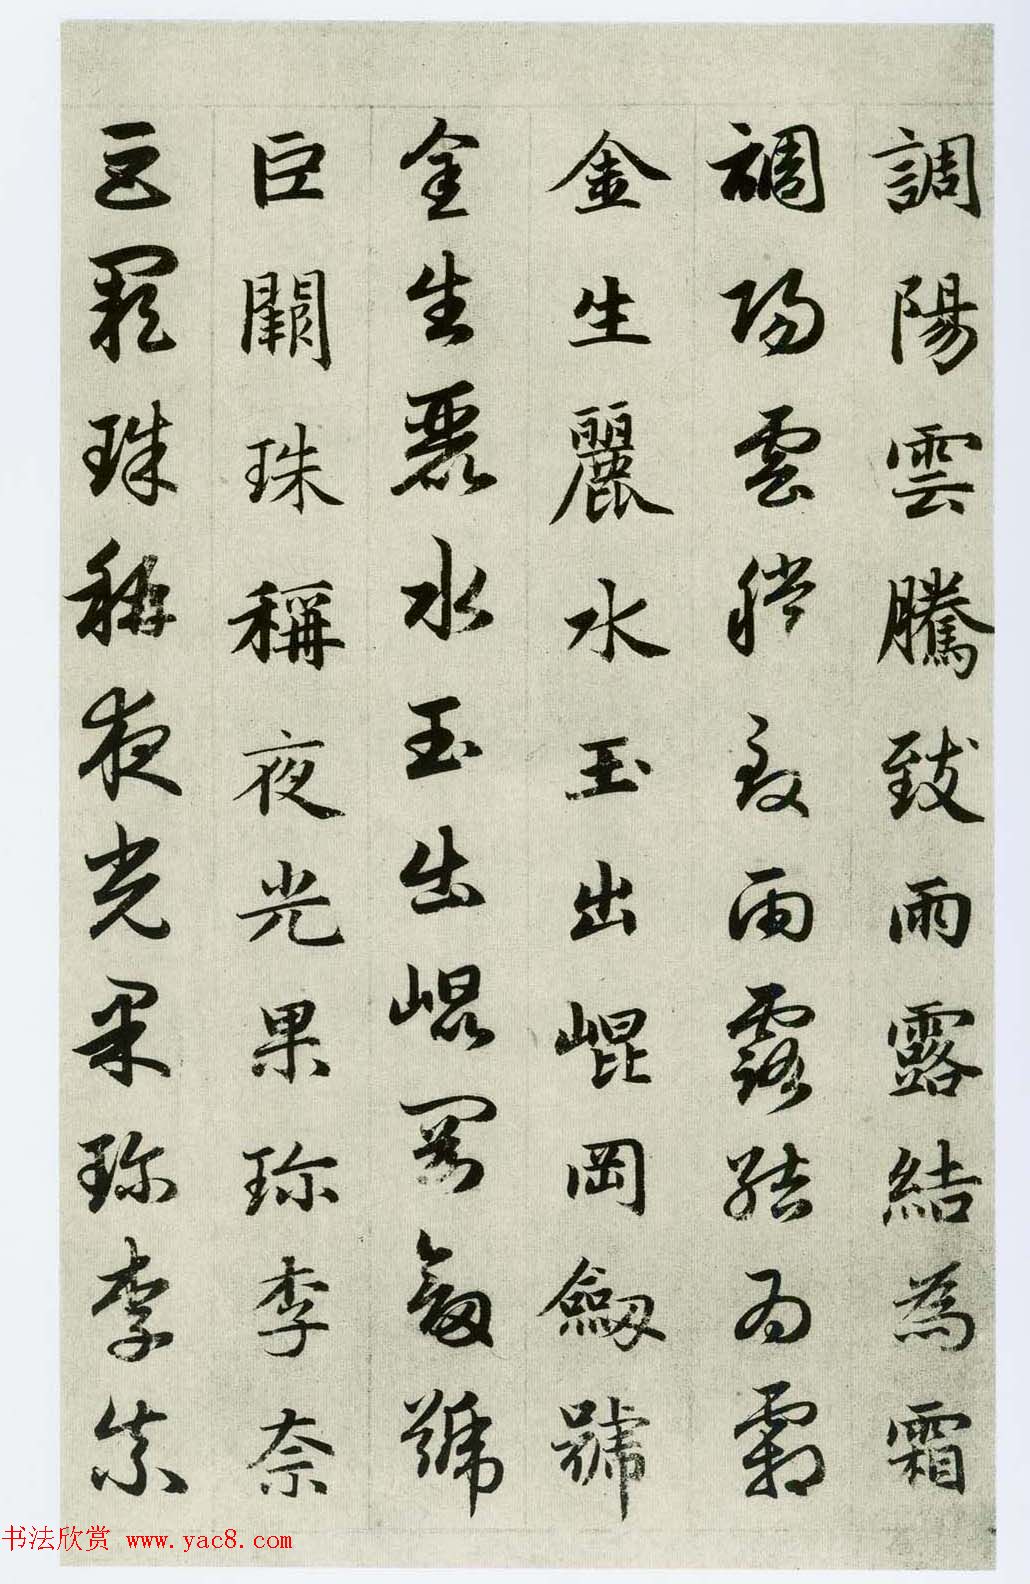 調陽雲騰致雨露結為霜
調陽雲騰致雨露結為霜
金生麗水玉出崐岡劔號
金生麗水玉出崐岡劔號
巨闕珠稱夜光果珎李柰
巨闕珠稱夜光果珎李柰
书法欣赏 www.yac8.com